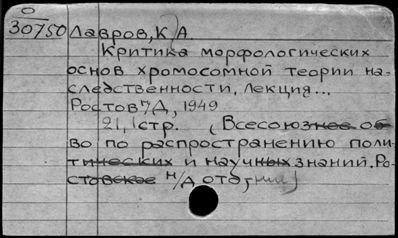 О
30750 Лавров, К. А.
Критика морфологических
основ хромосомной теории на-
следственности, Лекция...
Ростов н/Д, 1949
21,1 стр. (Всесоюзное об-
во по распространению поли-
тических и научных знаний. Ро-
стовское н/Д отд-ние)